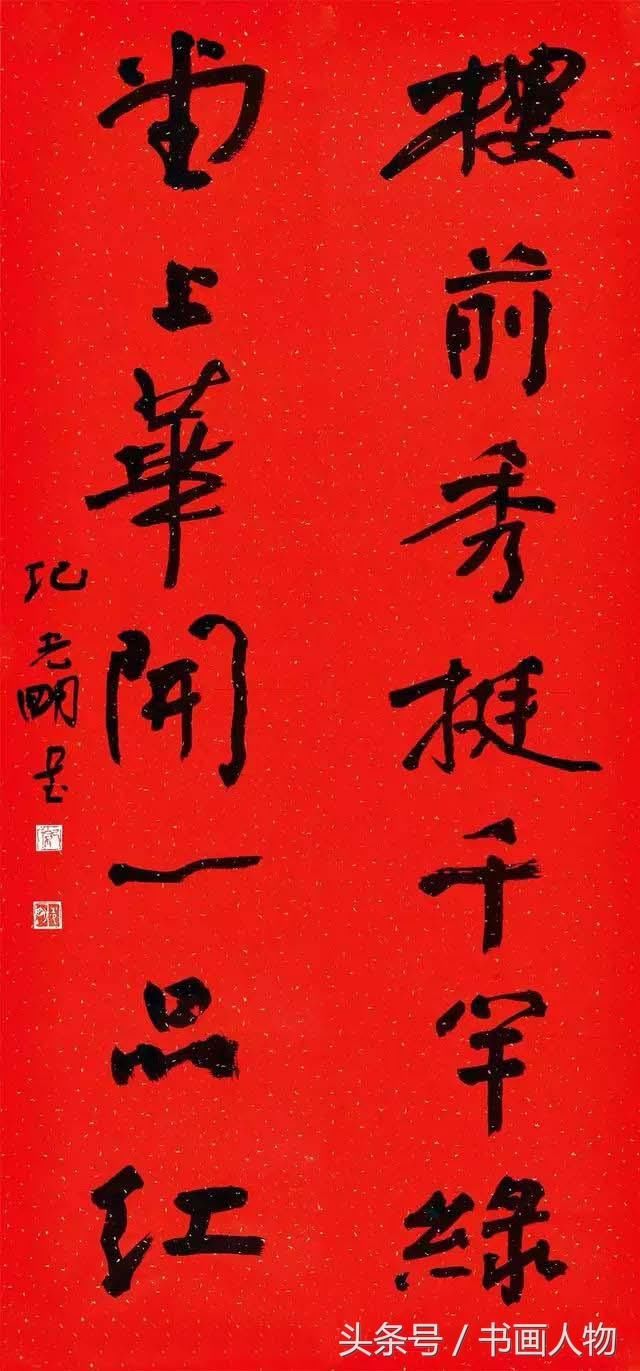 樓前秀挺千竿綠
堂上華開一品紅
紀光明書
头条号 / 书画人物